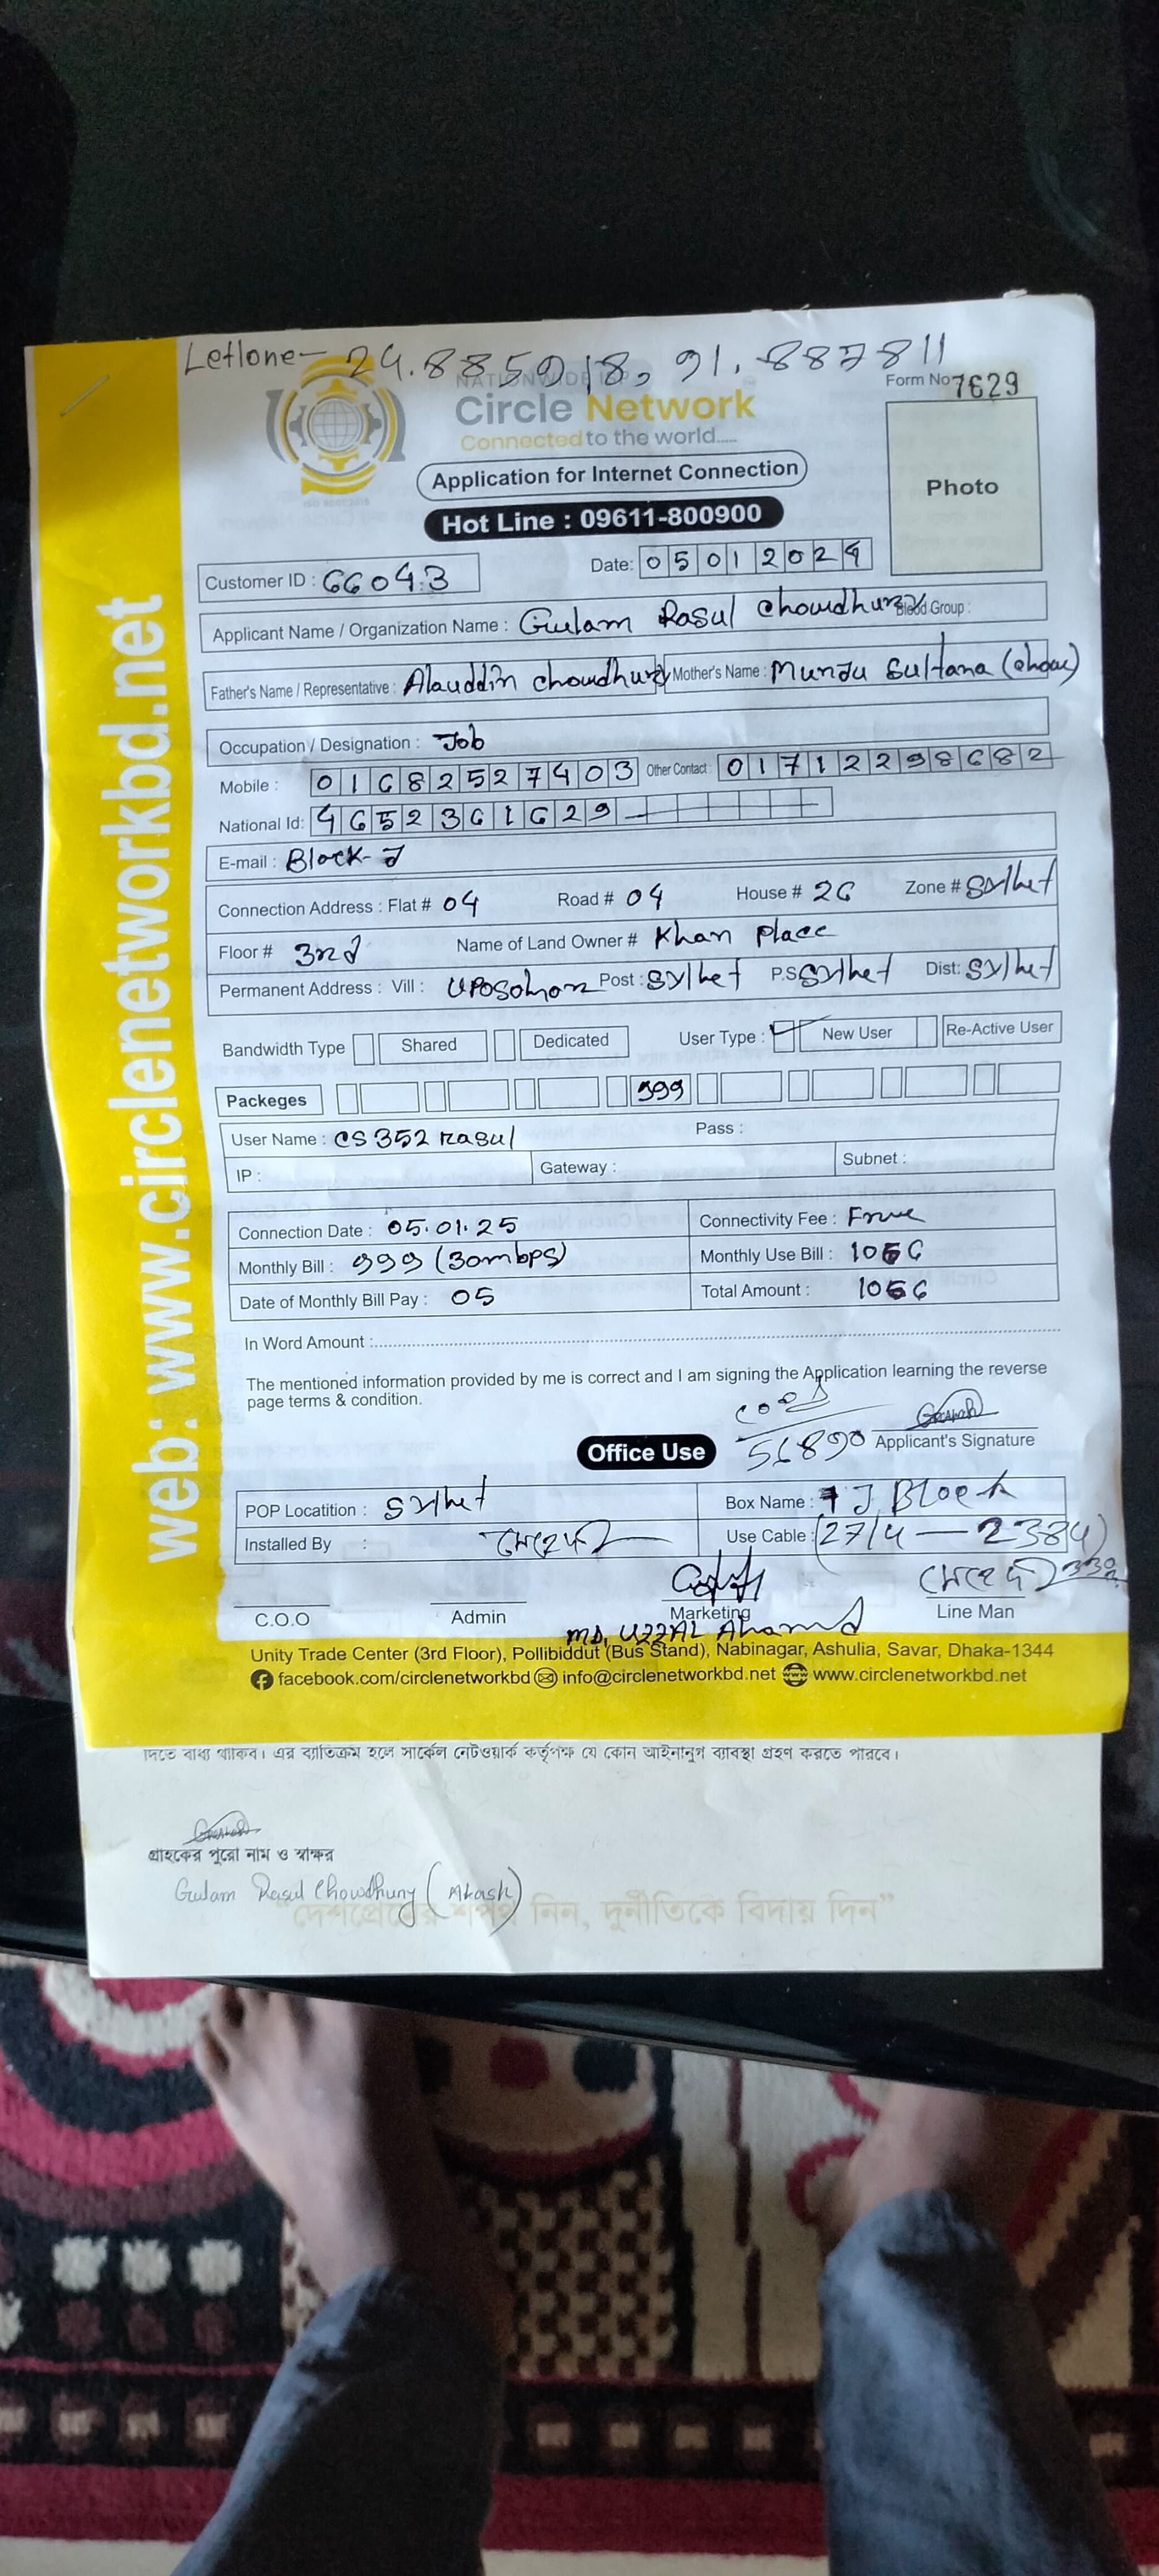 Letlone- 24.885918, 91.887811
NATIONWIDE ISP
Form No 7629
Circle Network
Connected to the world.....
Photo
Application for Internet Connection
Hot Line : 09611-800900
Customer ID : 66043
Date: 05012024
Applicant Name / Organization Name : Gulam Rasul Chowdhury Blood Group :
Father's Name / Representative : Alauddin Chowdhury Mother's Name : Sultana
Occupation / Designation : Job
Mobile : 01682527403 Other Contact : 01712298682
National Id: 4652361629
E-mail : Block-J
Connection Address : Flat # 04 Road # 04 House # 26 Zone # Sylhet
Floor # 3rd Name of Land Owner # Khan place
Permanent Address : Vill : Uposohor Post : Sylhet P.S Sylhet Dist: Sylhet
Bandwidth Type Shared Dedicated User Type : New User Re-Active User
Packeges 999
User Name : CS352rasul Pass :
IP : Gateway : Subnet :
Connection Date : 05.01.25 Connectivity Fee : Free
Monthly Bill : 999 (30mbps) Monthly Use Bill : 1056
Date of Monthly Bill Pay : 05 Total Amount : 1056
In Word Amount :
The mentioned information provided by me is correct and I am signing the Application learning the reverse
page terms & condition.
Office Use 56890 Applicant's Signature
POP Locatition : Sylhet Box Name : J Block
Installed By : Use Cable : (27/4 — 2384)
C.O.O Admin Marketing Line Man
MD. UZZAL Ahamd
Unity Trade Center (3rd Floor), Pollibiddut (Bus Stand), Nabinagar, Ashulia, Savar, Dhaka-1344
facebook.com/circlenetworkbd info@circlenetworkbd.net www.circlenetworkbd.net
web: www.circlenetworkbd.net
দিতে বাধ্য থাকিব। এর ব্যতিক্রম হলে সার্কেল নেটওয়ার্ক কর্তৃপক্ষ যে কোন আইনানুগ ব্যাবস্থা গ্রহণ করতে পারবে।
গ্রাহকের পুরো নাম ও স্বাক্ষর
Gulam Rasul Chowdhury (Akash)
“দেশপ্রেমের শপথ নিন, দুর্নীতিকে বিদায় দিন”